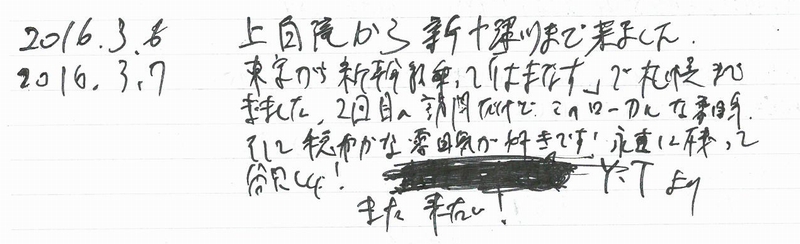 2016.3.6 上白滝から新十津川まで来ました.
2016.3.7 東京から新幹線乗って「はまなす」で札幌まで
来ました。2回目の訪問だけど、このローカルな雰囲気.
そして穏やかな雰囲気が好きです! 永遠に残って
欲しい!
Y.T より
また来たい!